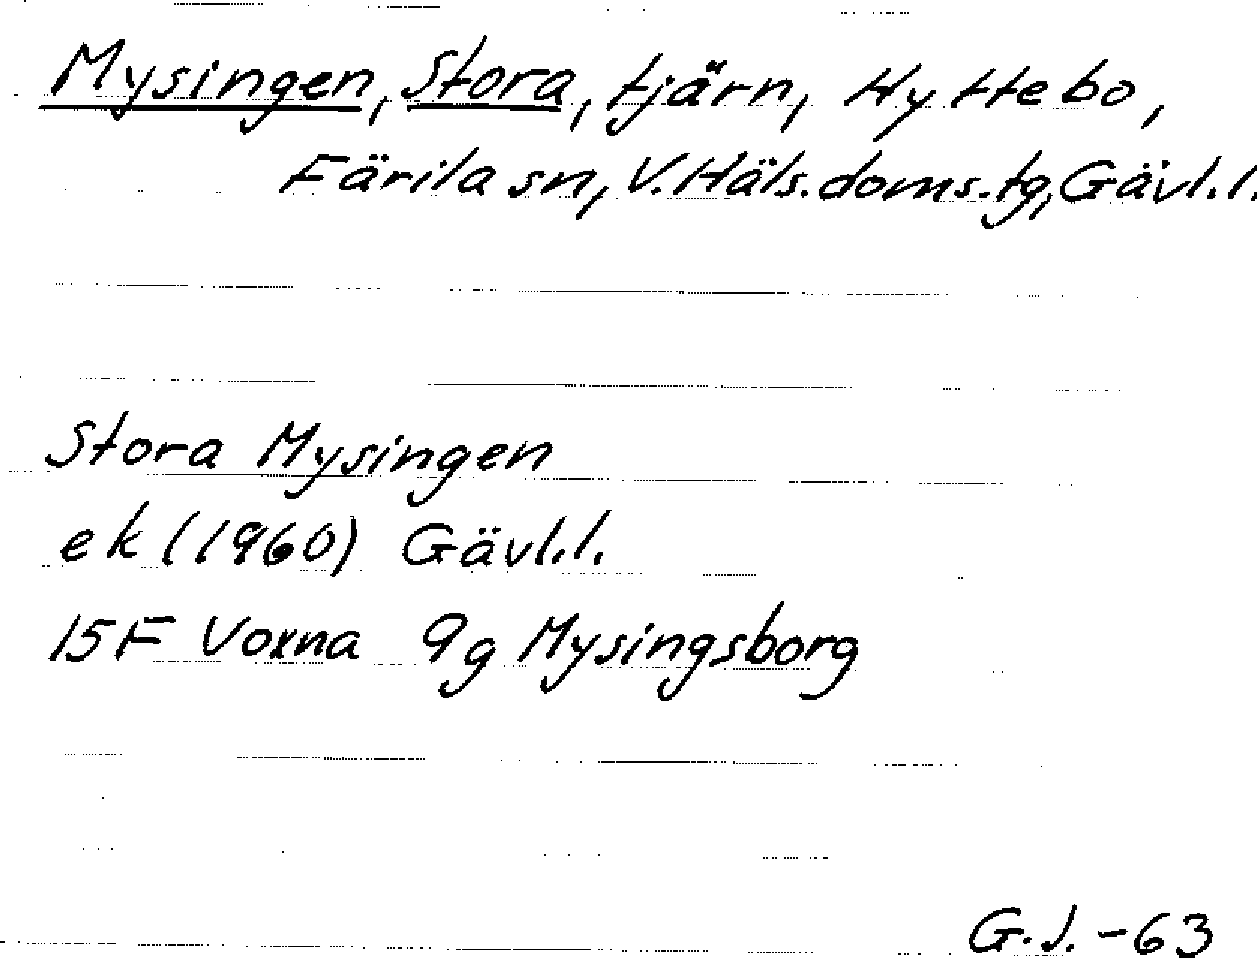 Mysingen, Stora, tjärn, Hyttebo,
Färila sn, V. Häls. doms. tg, Gävl. l.
Stora Mysingen
ek (1960) Gävl. l.
15F Voxna 9g Mysingsborg
G. J. - 63